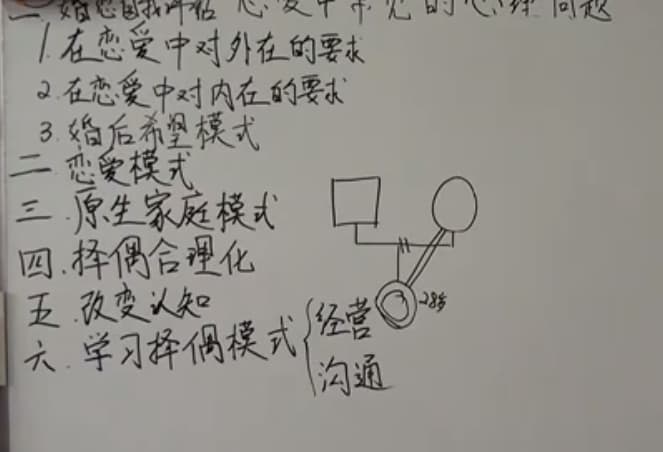 一.婚恋自我评估 恋爱中常见的心理问题
1.在恋爱中对外在的要求
2.在恋爱中对内在的要求
3.婚后希望模式
二 恋爱模式
三.原生家庭模式
四.择偶合理化
五.改变认知
28岁
六.学习择偶模式
经营
沟通